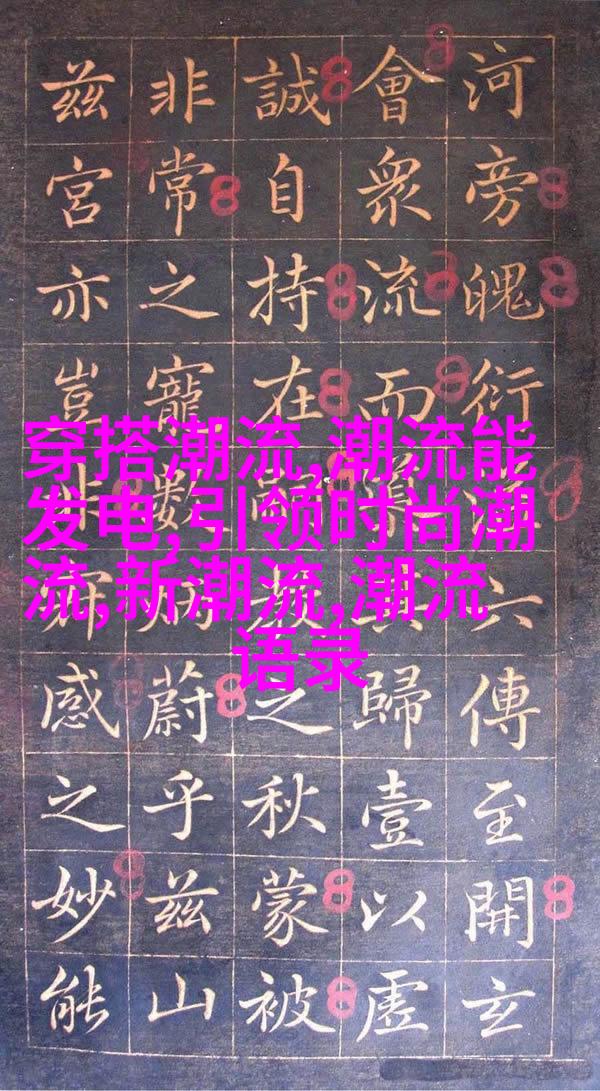 河旁魄衍六傳至開玄
會衆流而歸壹以虛
誠自持在之秋蒙被
非常之寵數蔚乎兹山
兹宮亦豈非感之妙能
穿搭潮流,潮流能
发电,引领时尚潮
流,新潮流,潮流
语录